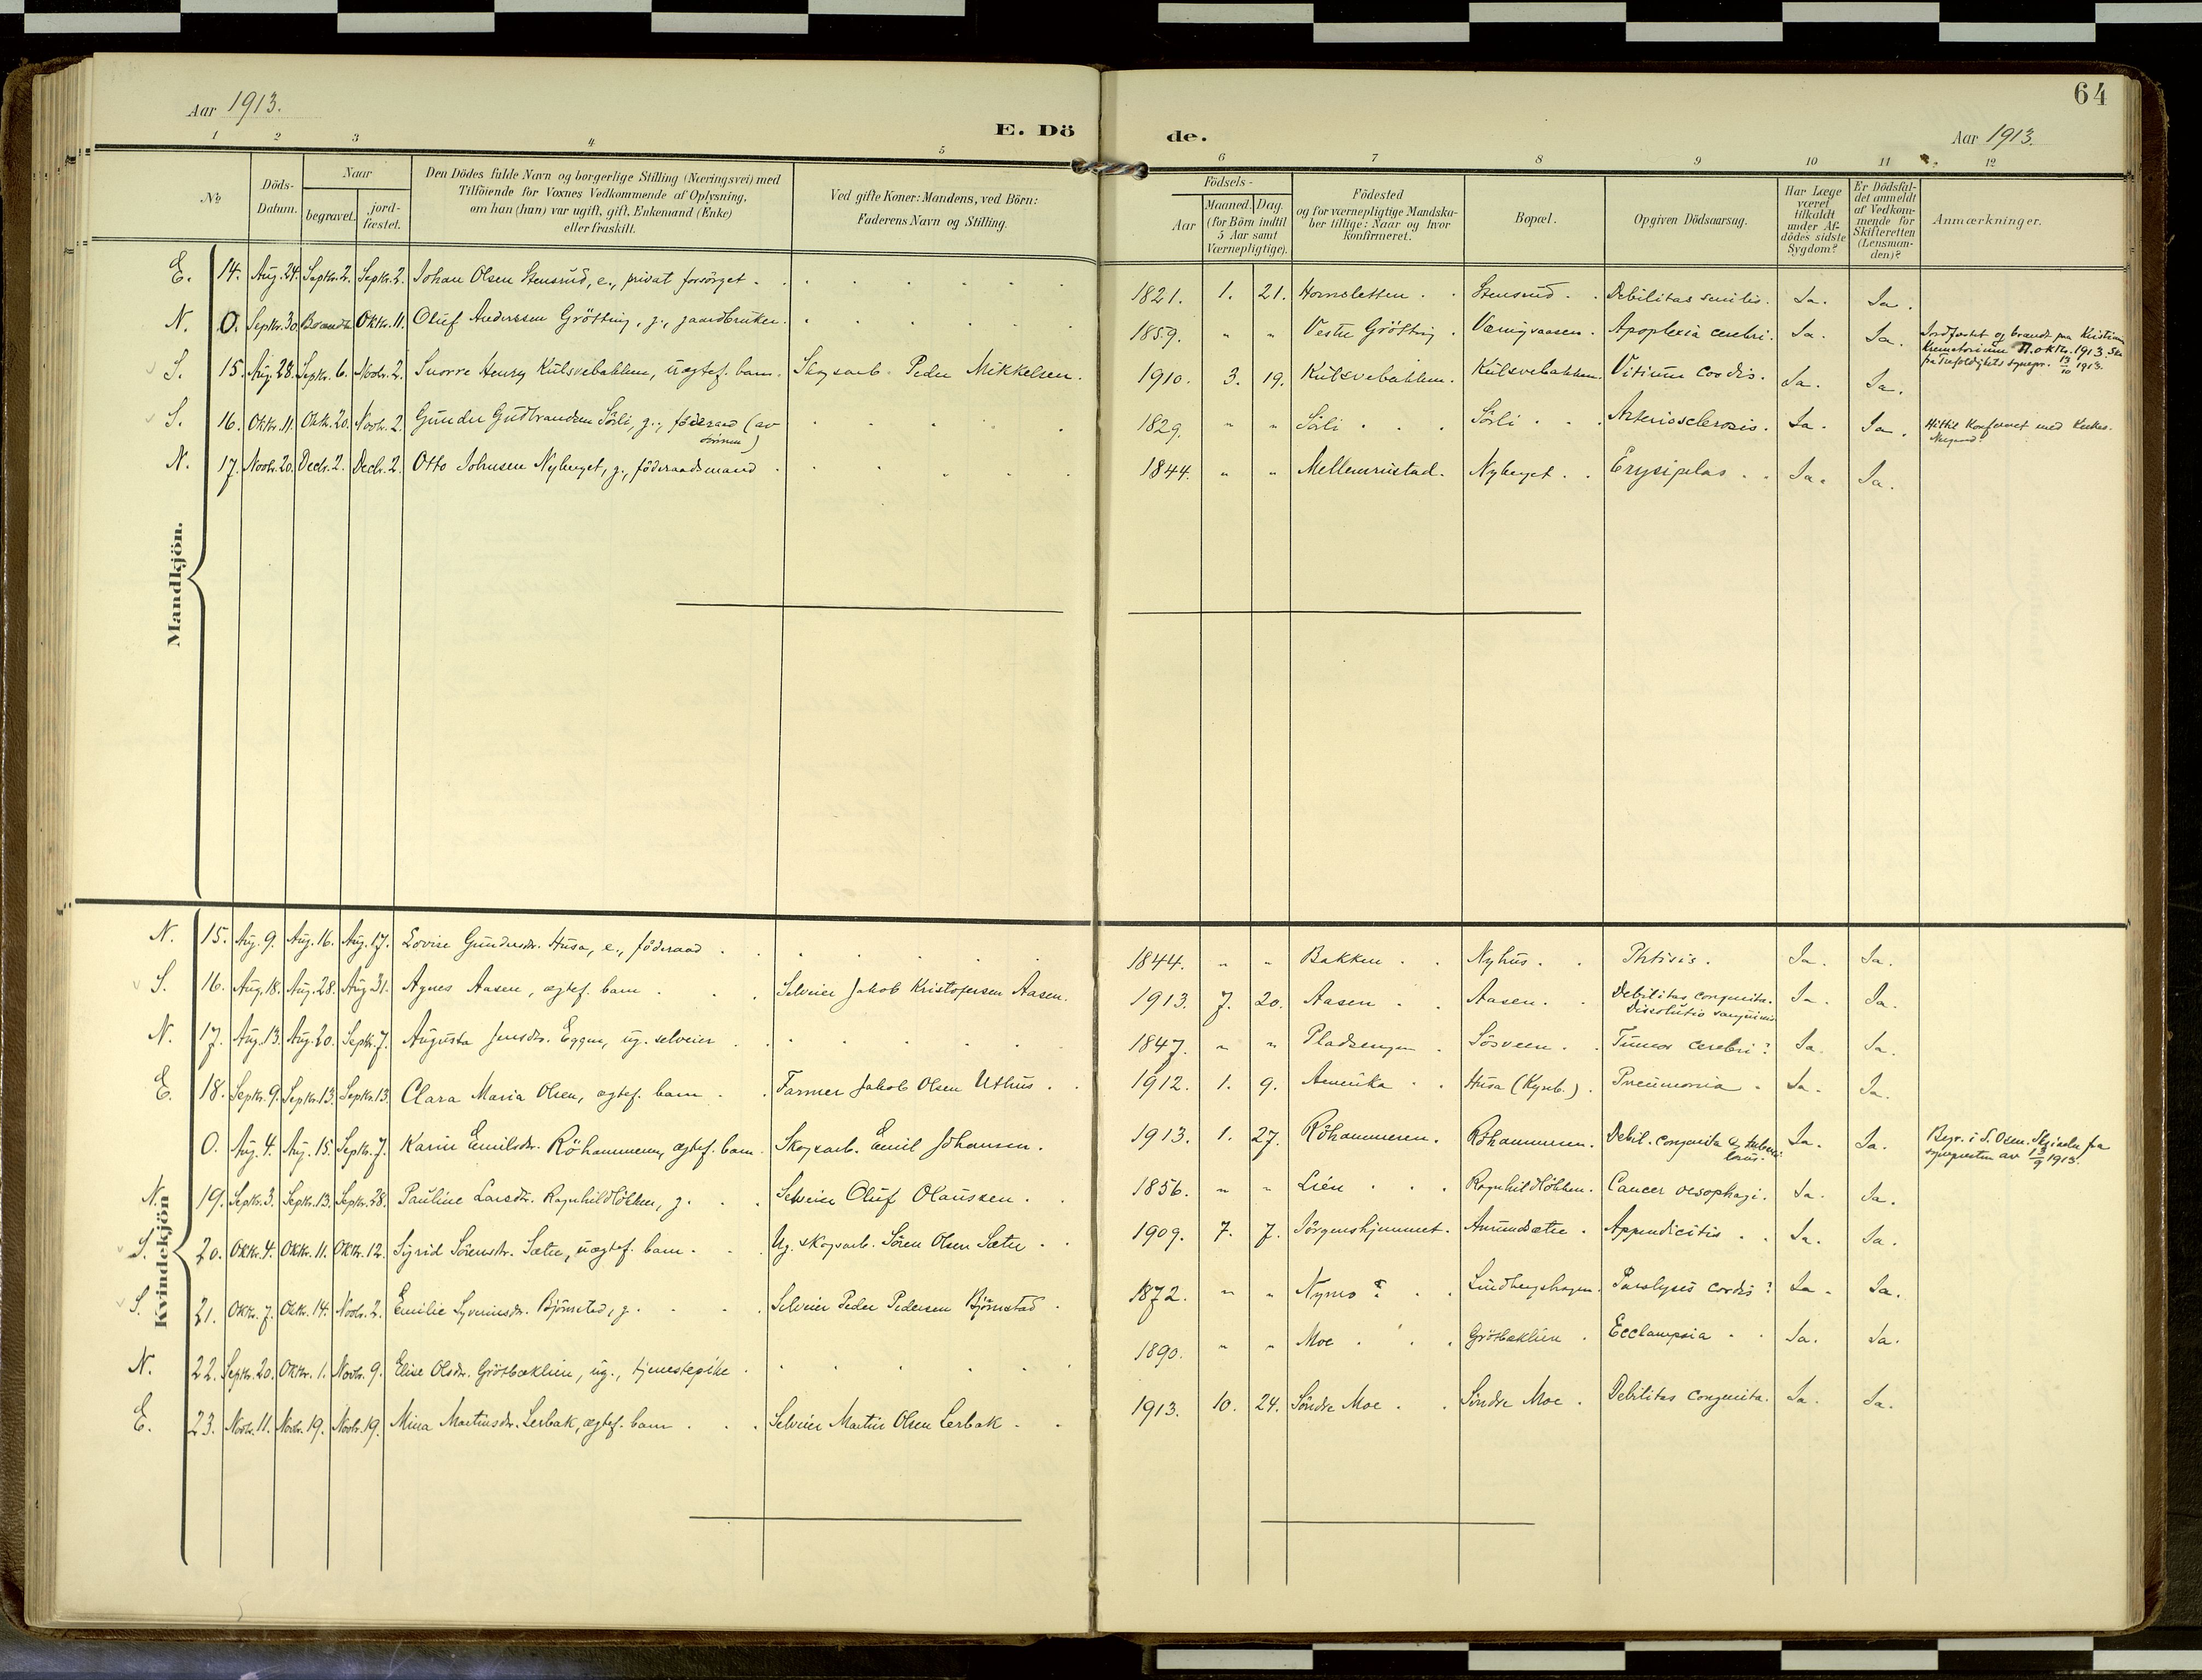 64
Aar 1913.
E. Dö
de.
Aar 1913.
1 2 3 4 5 6 7 8 9 10 11 12
No
Döds-
Datum.
Naar
begravet.
jord-
fæstet.
Den Dödes fulde Navn og borgerlige Stilling (Næringsvei) med
Tilföiende for Voxnes Vedkommende af Oplysning,
om han (hun) var ugift, gift, Enkemand (Enke)
eller fraskilt.
Ved gifte Koner: Mandens, ved Börn:
Faderens Navn og Stilling.
Födsels-
Aar
Maaned. Dag.
(for Börn indtil
5 Aar samt
Værnepligtige).
Födested
og for værnepligtige Mandska-
ber tillige: Naar og hvor
konfirmeret.
Bopæl.
Opgiven Dödsaarsag.
Har Læge
været
tilkaldt
under Af-
dödes sidste
Sygdom?
Er Dödsfal-
det anmeldt
af Vedkom-
mende for
Skifteretten
(Lensman-
den)?
Anmærkninger.
Mandkjön.
E. 14. Aug. 24. Septbr. 2. Septbr. 2. Johan Olsen Stensrud, e., privat forsörget . 1821. 1. 21. Hornsletten . Stensrud . Debilitas senilis. Ja. Ja.
N. 0. Septbr. 30. Brændt Oktbr. 11. Oluf Anderssen Grötting, g., gaardbruker. 1859. " " Vestre Grötting . Værnigvaasen . Apoplexia cerebri. Ja. Ja. Jordfæstet og brændt paa Kristiania
Krematorium 11. oktbr. 1913. Se
fra Trefoldighets sognepr. 13/10 1913.
S. 15. Aug. 28. Septbr. 6. Novbr. 2. Snorre Henry Kulsvebakken, uægtef. barn. Skogsarb. Peder Mikkelsen. 1910. 3. 19. Kulsvebakken. Kulsvebakken. Vitium cordis. Ja. Ja.
S. 16. Oktbr. 11. Oktb. 20. Novbr. 2. Gunder Gudbrandsen Sörli, g., föderaad (av
1829. " " Sörli . . . Sörli . . . Arteriosclerosis. Ja. Ja.
N. 17. Novbr. 20. Decbr. 2. Decbr. 2. Otto Johnsen Nyberget, g., föderaadsmand . 1844. " " Mellemrustad. Nyberget . . Erysipelas . . Ja. Ja.
Kvindekjön
N. 15. Aug. 9. Aug. 16. Aug. 17. Lovise Gundersdr. Husa, e., föderaad . 1844. " " Bakken . . Nyhus . . Phtisis. Ja. Ja.
S. 16. Aug. 18. Aug. 28. Aug. 31. Agnes Aasen, ægtef. barn . . . Selveier Jakob Kristofersen Aasen. 1913. 7. 20. Aasen . . Aasen . . Debilitas congenita.
Dissolutio sanguinis Ja. Ja.
N. 17. Aug. 13. Aug. 20. Septbr. 7. Augusta Jensdr. Eggen, ug. selveier . 1847. " " Pladsengen . Sösveen . . Tumor cerebri? Ja. Ja.
E. 18. Septbr. 9. Septbr. 13. Septbr. 13. Clara Maria Olsen, ægtef. barn . . Farmer Jakob Olsen Uthus . . 1912. 1. 9. Amerika . . Husa (Kynb.) . Pneumonia . Ja. Ja.
0. Aug. 4. Aug. 15. Septbr. 7. Karin Emilsdr. Röhammeren, ægtef. barn. Skogsarb. Emil Johansen. 1913. 1. 27. Röhammeren. Röhammeren. Debil. congenita & tuberc
Ja. Ja. Begr. i S. Osen. Skrivelse fra
sognepresten av 13/9 1913.
N. 19. Septbr. 3. Septbr. 13. Septbr. 28. Pauline Larsdr. Ragnhildlökken, g. . . Selveier Oluf Olaussen . . 1856. " " Lien . . . Ragnhildlökken. Cancer oesophagi. Ja. Ja.
S. 20. Oktbr. 4. Oktbr. 11. Oktbr. 12. Sigrid Sörensdr. Sætre, uægtef. barn . . . Ug. skogsarb. Sören Olsen Sætre . . 1909. 7. 7. Jörgenshjemmet. Amundsætre . Appendicitis . . Ja. Ja.
S. 21. Oktbr. 7. Oktb. 14. Novbr. 2. Emilie Syverinsdr. Björnstad, g. . . . Selveier Peder Pedersen Björnstad . 1872. " " Nymo ? . . Lindbergshagen. Paralysis cordis? Ja. Ja.
N. 22. Septbr. 20. Oktbr. 1. Novbr. 9. Elise Olsdr. Grötbæklien, ug., tjenestepike . 1890. " " Moe . . . Grötbæklien . Ecclampsia . . Ja. Ja.
E. 23. Novbr. 11. Novbr. 19. Novbr. 19. Mina Martinsdr. Lerbak, ægtef. barn . . . Selveier Martin Olsen Lerbak . . 1913. 10. 24. Söndre Moe . . Söndre Moe . Debilitas congenita. Ja. Ja.